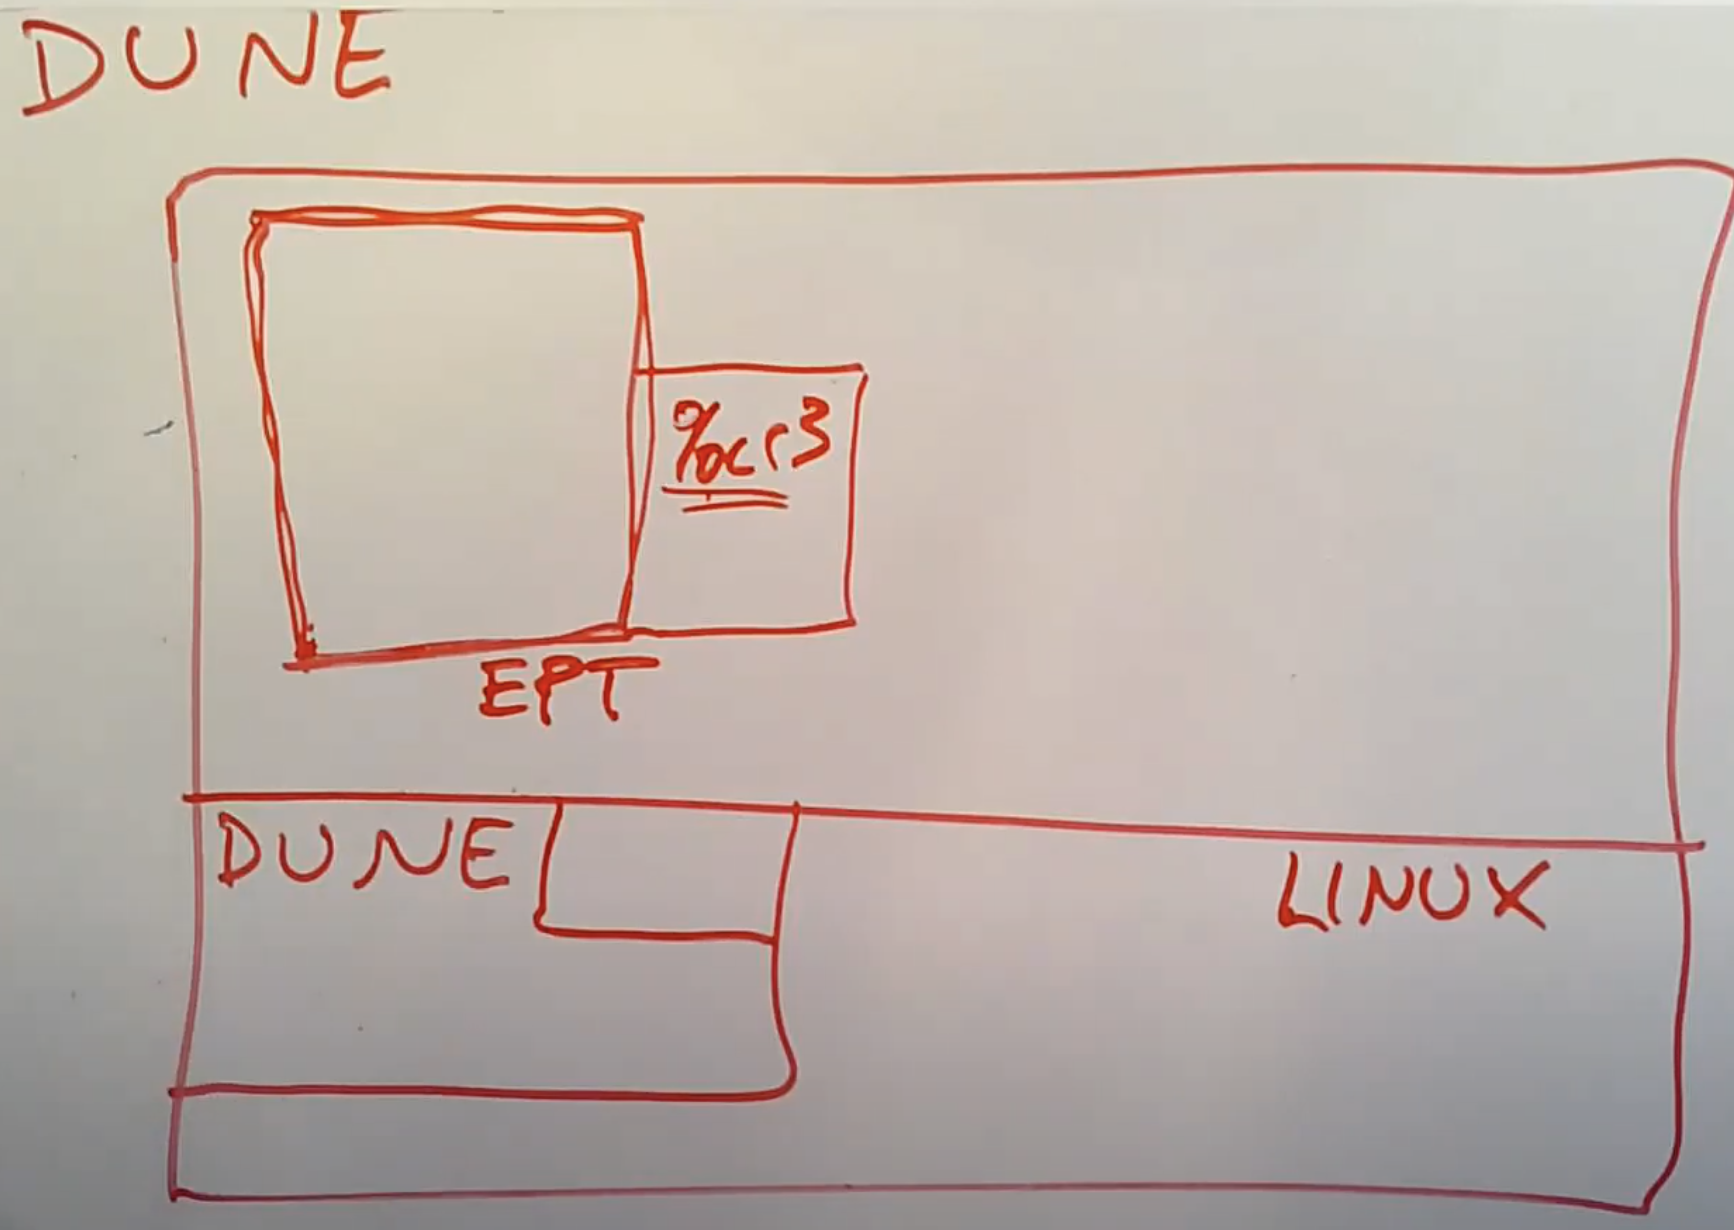 DUNE
%cr3
EPT
DUNE
LINUX